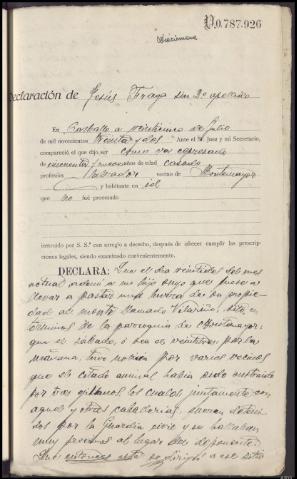 P.0.787.926
Declaración de Jesús Fraga sin 2º apellido
En Carballo a veinticinco de Julio
de mil novecientos treinta y dos. Ante el Sr. Juez y mi Secretario,
compareció el que dijo ser como va expresado
de cincuenta años de edad casado
profesión labrador vecino de Montemayor
y habitante en id
que no ha procesado
instruído por S. S.ª con arreglo a derecho, después de ofrecer cumplir las prescrip-
ciones legales, siendo examinado convenientemente.
DECLARA: Que el día veintidos del mes
actual ordenó a un hijo suyo que fuese a
llevar a pastar una burra de su propie-
dad al monte llamado sito en
términos de la parroquia de Montemayor;
que el sábado, o sea el veintitres por la
mañana, tuvo noticia por varios vecinos
que el citado animal había sido sustraido
por tres gitanos los cuales juntamente con
aquel y otras caballerías, fueron deteni-
dos por la Guardia civil y se hallaban
muy proximo al lugar del deponente.
Que entonces este se dirigió a ese sitio